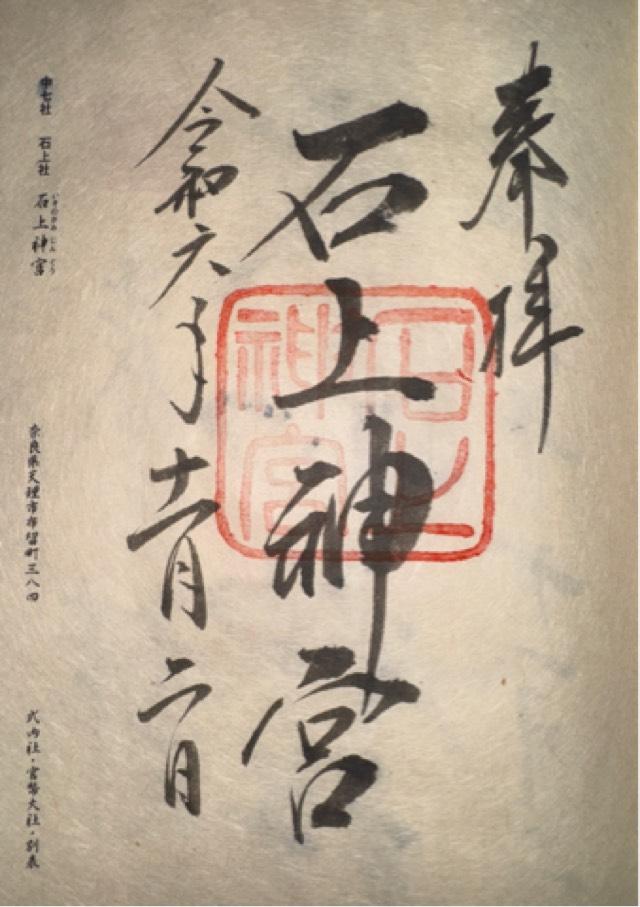 奉拝
石上神宮
石上
神宮
令和六年十一月二日
中七社 石上社 石上神宮
いそのかみじんぐう
奈良県天理市布留町三八四
式内社・官幣大社・別表